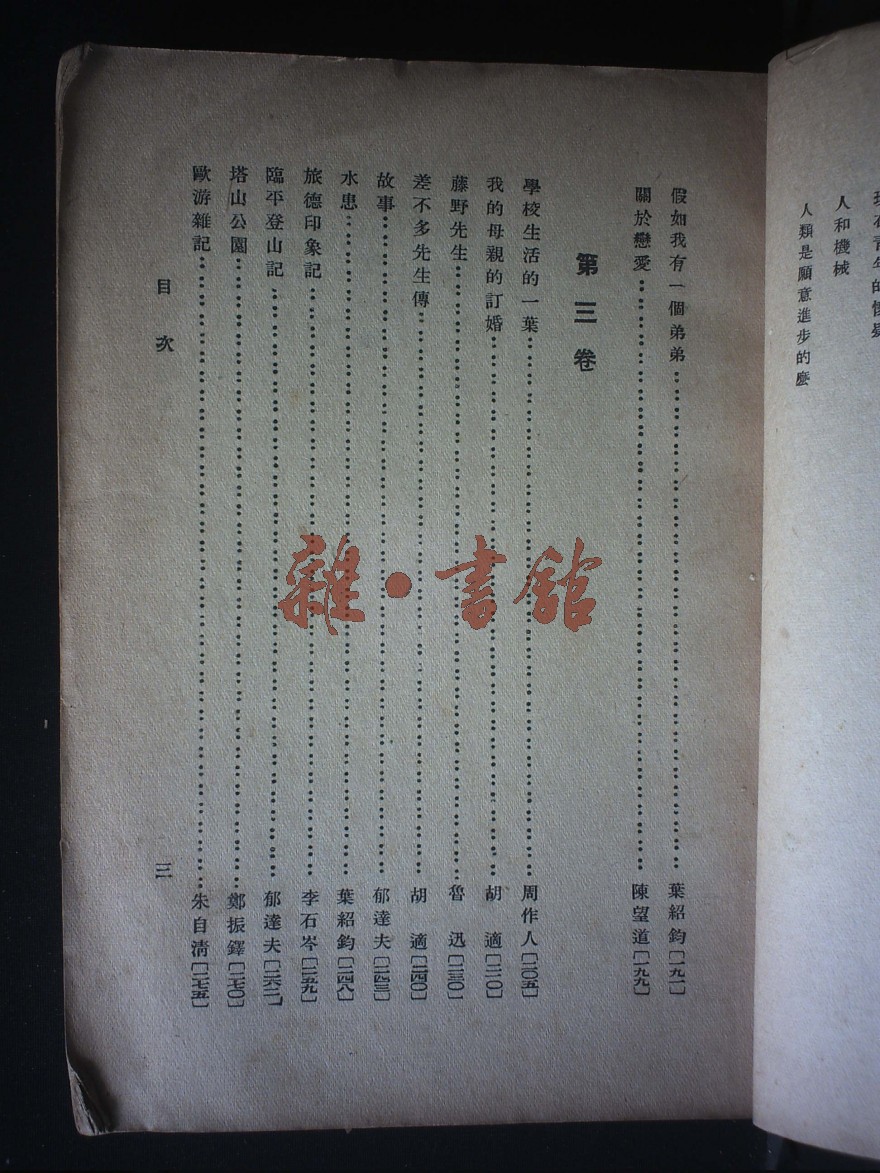 人和機械
人類是願意進步的麼
假如我有一個弟弟…………葉紹鈞〔一九一〕
關於戀愛…………陳望道〔一九九〕
第三卷
學校生活的一葉…………周作人〔二〇五〕
我的母親的訂婚…………胡適〔二一〇〕
藤野先生…………魯迅〔二三〇〕
差不多先生傳…………胡適〔二四〇〕
故事…………郁達夫〔二四三〕
水患…………葉紹鈞〔二四八〕
旅德印象記…………李石岑〔二五九〕
臨平登山記…………郁達夫〔二六二〕
塔山公園…………鄭振鐸〔二七〇〕
歐游雜記…………朱自清〔二七五〕
目次
三
雜·書館